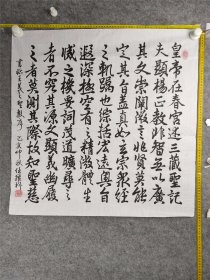 皇帝在春宮述三藏聖記
夫顯揚正教非智無以廣
其文崇闡微言非賢莫能
定其旨蓋真如玄宗衆經
之軌躅也綜括宏遠奧旨
遐深極空有之精微體生
滅之機要詞茂道曠尋之
者不究其源文顯義幽履
之者莫測其際故知聖慈
王羲之聖教序